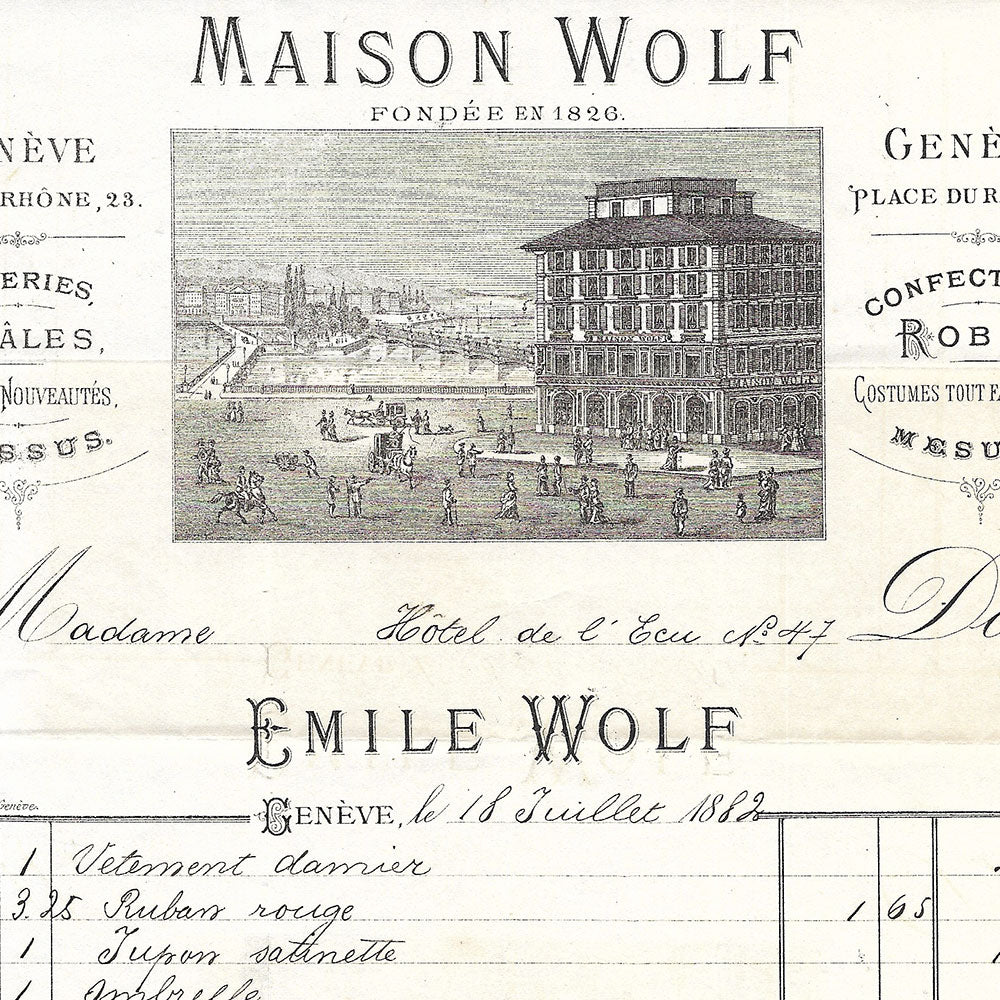 MAISON WOLF
FONDÉE EN 1826.
NÈVE
RHÔNE, 23.
ERIES,
ÂLES,
NOUVEAUTÉS,
SSUS.
GENÈ
PLACE DU R
CONFECT
ROB
COSTUMES TOUT F
MESU
MAISON WOLF
MAISON WOLF
Madame Hôtel de l'Ecu No. 47 Do
EMILE WOLF
Genève.
GENÈVE, le 18 Juillet 1882
1 Vetement damier
3.25 Ruban rouge 1 65
1 Jupon satinette
1 Ombrelle